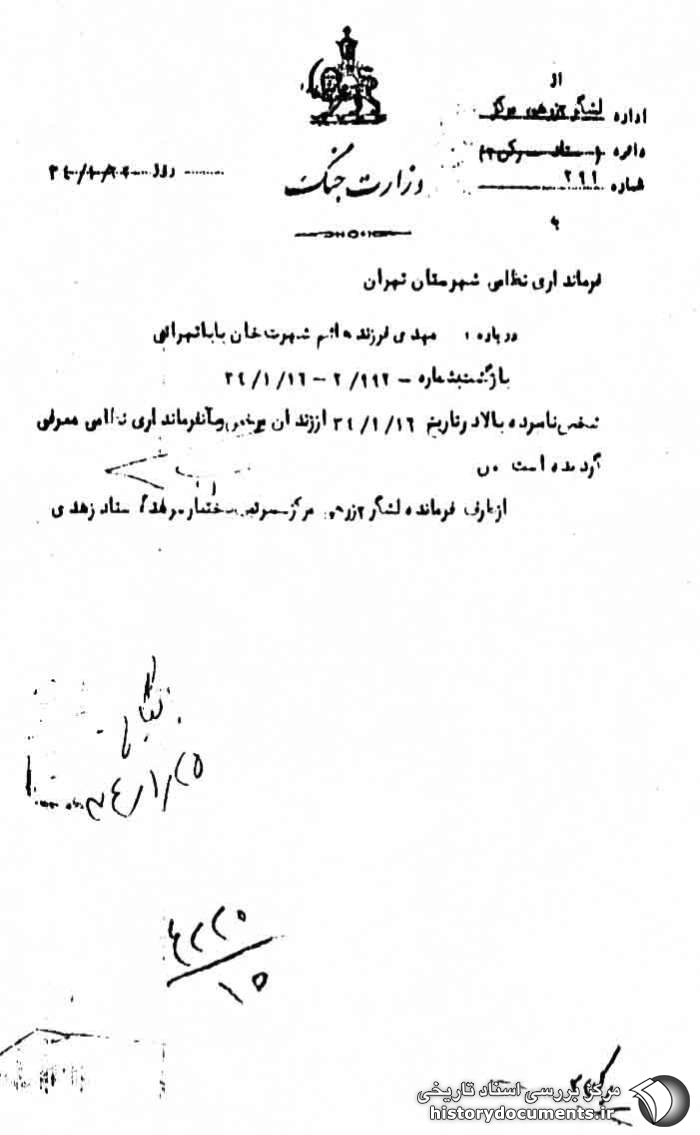 از
اداره لشگر ۲ زرهی مرکز
دائره (ستاد رکن ۲)
شماره ۲۹۱
وزارت جنگ
روز
به
فرمانداری نظامی شهرستان تهران
درباره : مهدی فرزند هاشم شهرت خان باباتهرانی
بازگشت بشماره – ۲/۹۹۲ – ۳٤/۱/۱٦
شخص نامبرده بالا در تاریخ ۳٤/۱/۱٦ از زندان مرخص و بآنفرمانداری نظامی معرفی
گردیده است
از طرف فرمانده لشگر ۲ زرهی مرکز سرتیپ بختیار ستاد زهدی
بایگانی
٤۲۲۰
۱۵
مرکز بررسی اسناد تاریخی
historydocuments.ir